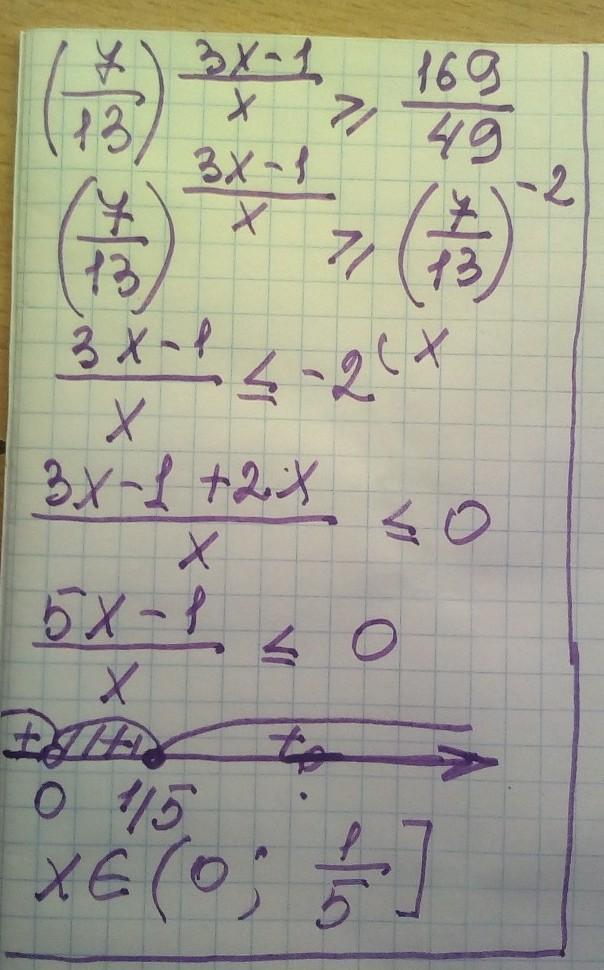 (7/13)^((3x-1)/x) ≥ 169/49
(7/13)^((3x-1)/x) ≥ (7/13)^(-2)
(3x-1)/x ≤ -2 (x
(3x-1+2x)/x ≤ 0
(5x-1)/x ≤ 0
+ +
0 1/5
x∈(0; 1/5]